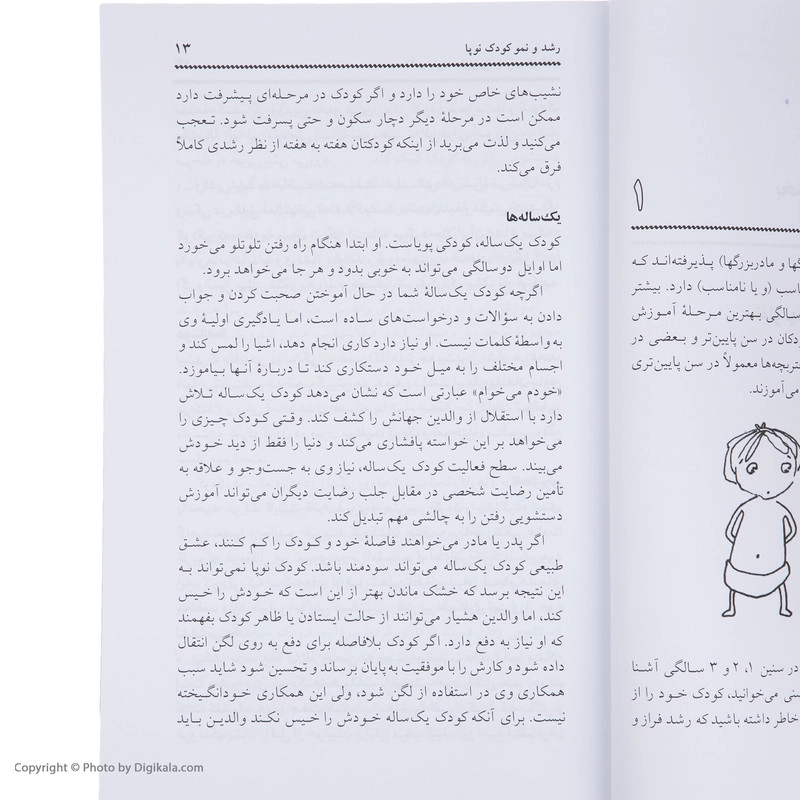 ۱
گها و مادربزرگها) پذیرفته‌اند که
اسب (و یا نامناسب) دارد. بیشتر
سالگی بهترین مرحلهٔ آموزش
ودکان در سن پایین‌تر و بعضی در
معمولاً در سن پایین‌تری
می‌آموزند.
در سنین ۱، ۲ و ۳ سالگی آشنا
می‌توانید، کودک خود را از
خاطر داشته باشید که رشد فراز و
رشد و نمو کودک نوپا ۱۳
نشیب‌های خاص خود را دارد و اگر کودک در مرحله‌ای پیشرفت دارد
ممکن است در مرحلهٔ دیگر دچار سکون و حتی پسرفت شود. تعجب
می‌کنید و لذت می‌برید از اینکه کودکتان هفته به هفته از نظر رشدی کاملاً
فرق می‌کند.
یک‌ساله‌ها
کودک یک‌ساله، کودکی پویاست. او ابتدا هنگام راه رفتن تلوتلو می‌خورد
اما اوایل دوسالگی می‌تواند به خوبی بدود و هر جا می‌خواهد برود.
اگرچه کودک یک‌سالهٔ شما در حال آموختن صحبت کردن و جواب
دادن به سؤالات و درخواست‌های ساده است، اما یادگیری اولیهٔ وی
به‌واسطهٔ کلمات نیست. او نیاز دارد کاری انجام دهد، اشیا را لمس کند و
اجسام مختلف را به میل خود دستکاری کند تا دربارهٔ آنها بیاموزد.
«خودم می‌خوام» عبارتی است که نشان می‌دهد کودک یک‌ساله تلاش
دارد با استقلال از والدین جهانش را کشف کند. وقتی کودک چیزی را
می‌خواهد بر این خواسته پافشاری می‌کند و دنیا را فقط از دید خودش
می‌بیند. سطح فعالیت کودک یک‌ساله، نیاز وی به جست‌وجو و علاقه به
تأمین رضایت شخصی در مقابل جلب رضایت دیگران می‌تواند آموزش
دستشویی رفتن را به چالشی مهم تبدیل کند.
اگر پدر یا مادر می‌خواهند فاصلهٔ خود و کودک را کم کنند، عشق
طبیعی کودک یک‌ساله می‌تواند سودمند باشد. کودک نوپا نمی‌تواند به
این نتیجه برسد که خشک ماندن بهتر از این است که خودش را خیس
کند، اما والدین هشیار می‌توانند از حالت ایستادن یا ظاهر کودک بفهمند
که او نیاز به دفع دارد. اگر کودک بلافاصله برای دفع به روی لگن انتقال
داده شود و کارش را با موفقیت به پایان برساند و تحسین شود شاید سبب
همکاری وی در استفاده از لگن شود، ولی این همکاری خودانگیخته
نیست. برای آنکه کودک یک‌ساله خودش را خیس نکند والدین باید
Copyright © Photo by Digikala.com